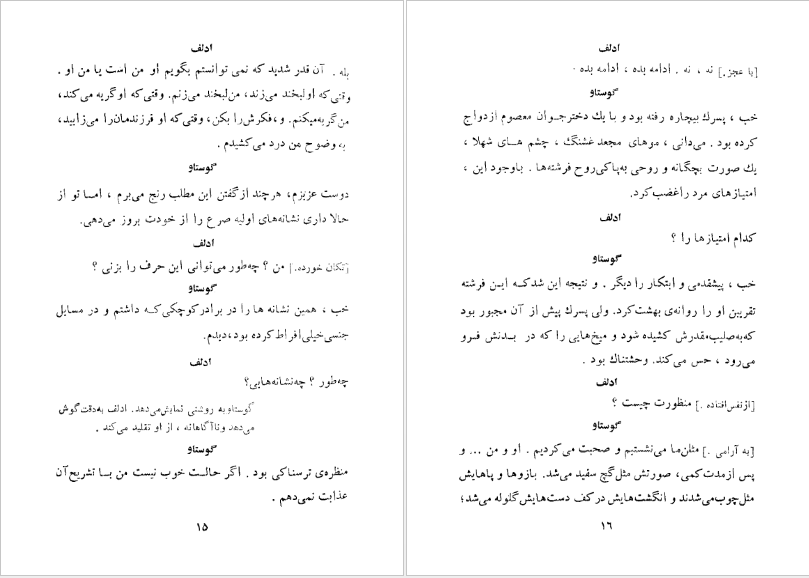 ادلف
بله . آن قدر شدید که نمی توانستم بگویم او من است یا من او .
وقتی‌که اولبخند می‌زند، من‌لبخند می‌زنم. وقتی‌که اوگریه می‌کند،
من‌گریه‌میکنم. و،فکرش‌را بکن، وقتی‌که او فرزندمان‌را می‌زایید،
به وضوح من درد می‌کشیدم .
گوستاو
دوست عزیزم، هرچند ازگفتن این مطلب رنج می‌برم ، امـا تو از
حالا داری نشانه‌های اولیه صرع را از خودت بروز می‌دهی.
ادلف
[تکان خورده.] من ؟ چه‌طور می‌توانی این حرف را بزنی ؟
گوستاو
خب ، همین نشانه ها را در برادرکوچکی‌کـه داشتم و در مسایل
جنسی‌خیلی‌افراط‌کرده بود،دیدم.
ادلف
چه‌طور ؟ چه‌نشانه‌هایی؟
گوستاوبه روشنی نمایش‌می‌دهد. ادلف به‌دقت‌گوش
می‌دهد وناآگاهانه ، از او تقلید می‌کند .
گوستاو
منظره‌ی ترسناکی بود . اگر حالـت خوب نیست من بـا تشریح‌آن
عذابت نمی‌دهم .
۱۵
ادلف
[با عجز.] نه ، نه . ادامه بده ، ادامه بده .
گوستاو
خب ، پسرك بیچاره رفته بود و با یك دخترجـوان معصوم ازدواج
کرده بود . می‌دانی ، موهای مجعد قشنگ ، چشم هـای شهلا ،
یك صورت بچگانه و روحی به‌پاکی‌روح فرشته‌ها . باوجود این ،
امتیازهای مرد راغصب‌کرد.
ادلف
کدام امتیازها را ؟
گوستاو
خب ، پیشقدمی و ابتکار را دیگر . و نتیجه این شدکـه ایـن فرشته
تقریبن او را روانه‌ی بهشت‌کرد. ولی پسرك پیش از آن مجبور بود
که‌به‌صلیب‌مقدرش کشیده شود و میخ‌هایی را که در بـدنش فـرو
می‌رود ، حس می‌کند. وحشتناك بود .
ادلف
[ازنفس‌افتاده .] منظورت چیست ؟
گوستاو
[به آرامی .] مثلن‌ما می‌نشستیم و صحبت می‌کردیم . او و من ... و
پس ازمدت‌کمی، صورتش مثل‌گچ سفید می‌شد. بازوها و پاهایش
مثل‌چوب‌می‌شدند و انگشت‌هایش درکف دست‌هایش‌گلوله می‌شد؛
۱۶